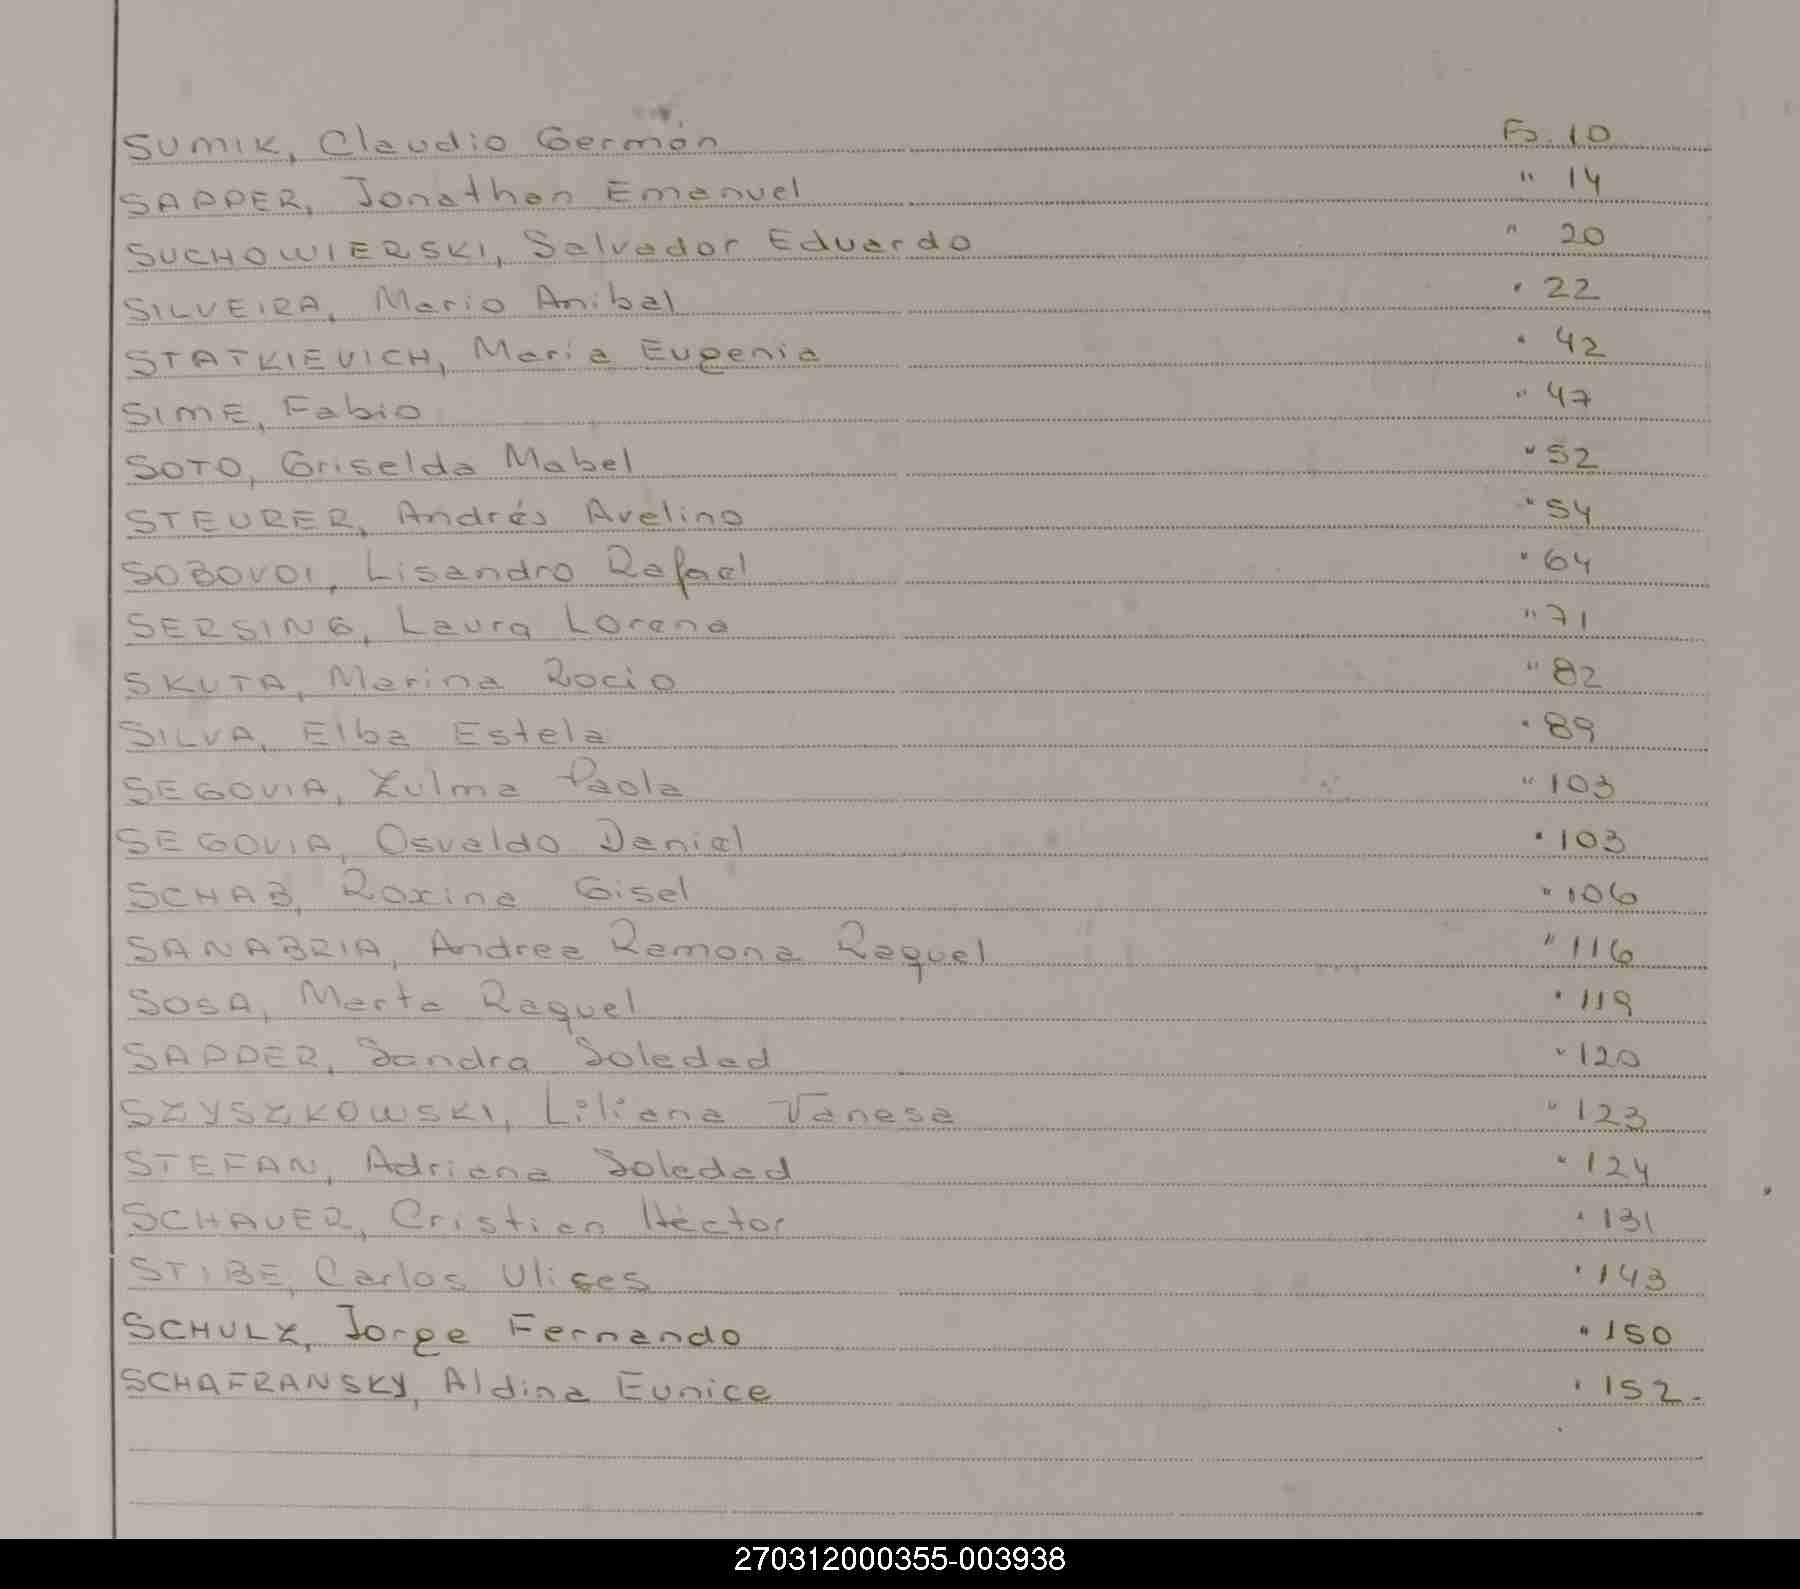 SUMIK, Claudio Germán Fs. 10
SAPPER, Jonathan Emanuel " 14
SUCHOWIERSKI, Salvador Eduardo " 20
SILVEIRA, Mario Anibal " 22
STATKIEVICH, Maria Eugenia " 42
SIME, Fabio " 47
SOTO, Griselda Mabel " 52
STEURER, Andrés Avelino " 54
SOBOVOI, Lisandro Rafael " 64
SERSING, Laura Lorena " 71
SKUTA, Marina Rocio " 82
SILVA, Elba Estela " 89
SEGOVIA, Zulma Paola " 103
SEGOVIA, Osvaldo Daniel " 103
SCHAB, Roxina Gisel " 106
SANABRIA, Andrea Ramona Raquel " 116
SOSA, Marta Raquel " 119
SAPPER, Sandra Soledad " 120
SZYSZKOWSKI, Liliana Vanesa " 123
STEFAN, Adriana Soledad " 124
SCHAUER, Cristian Héctor " 131
STIBE, Carlos Ulises " 143
SCHULZ, Jorge Fernando " 150
SCHAFRANSKY, Aldina Eunice " 152.-
270312000355-003938